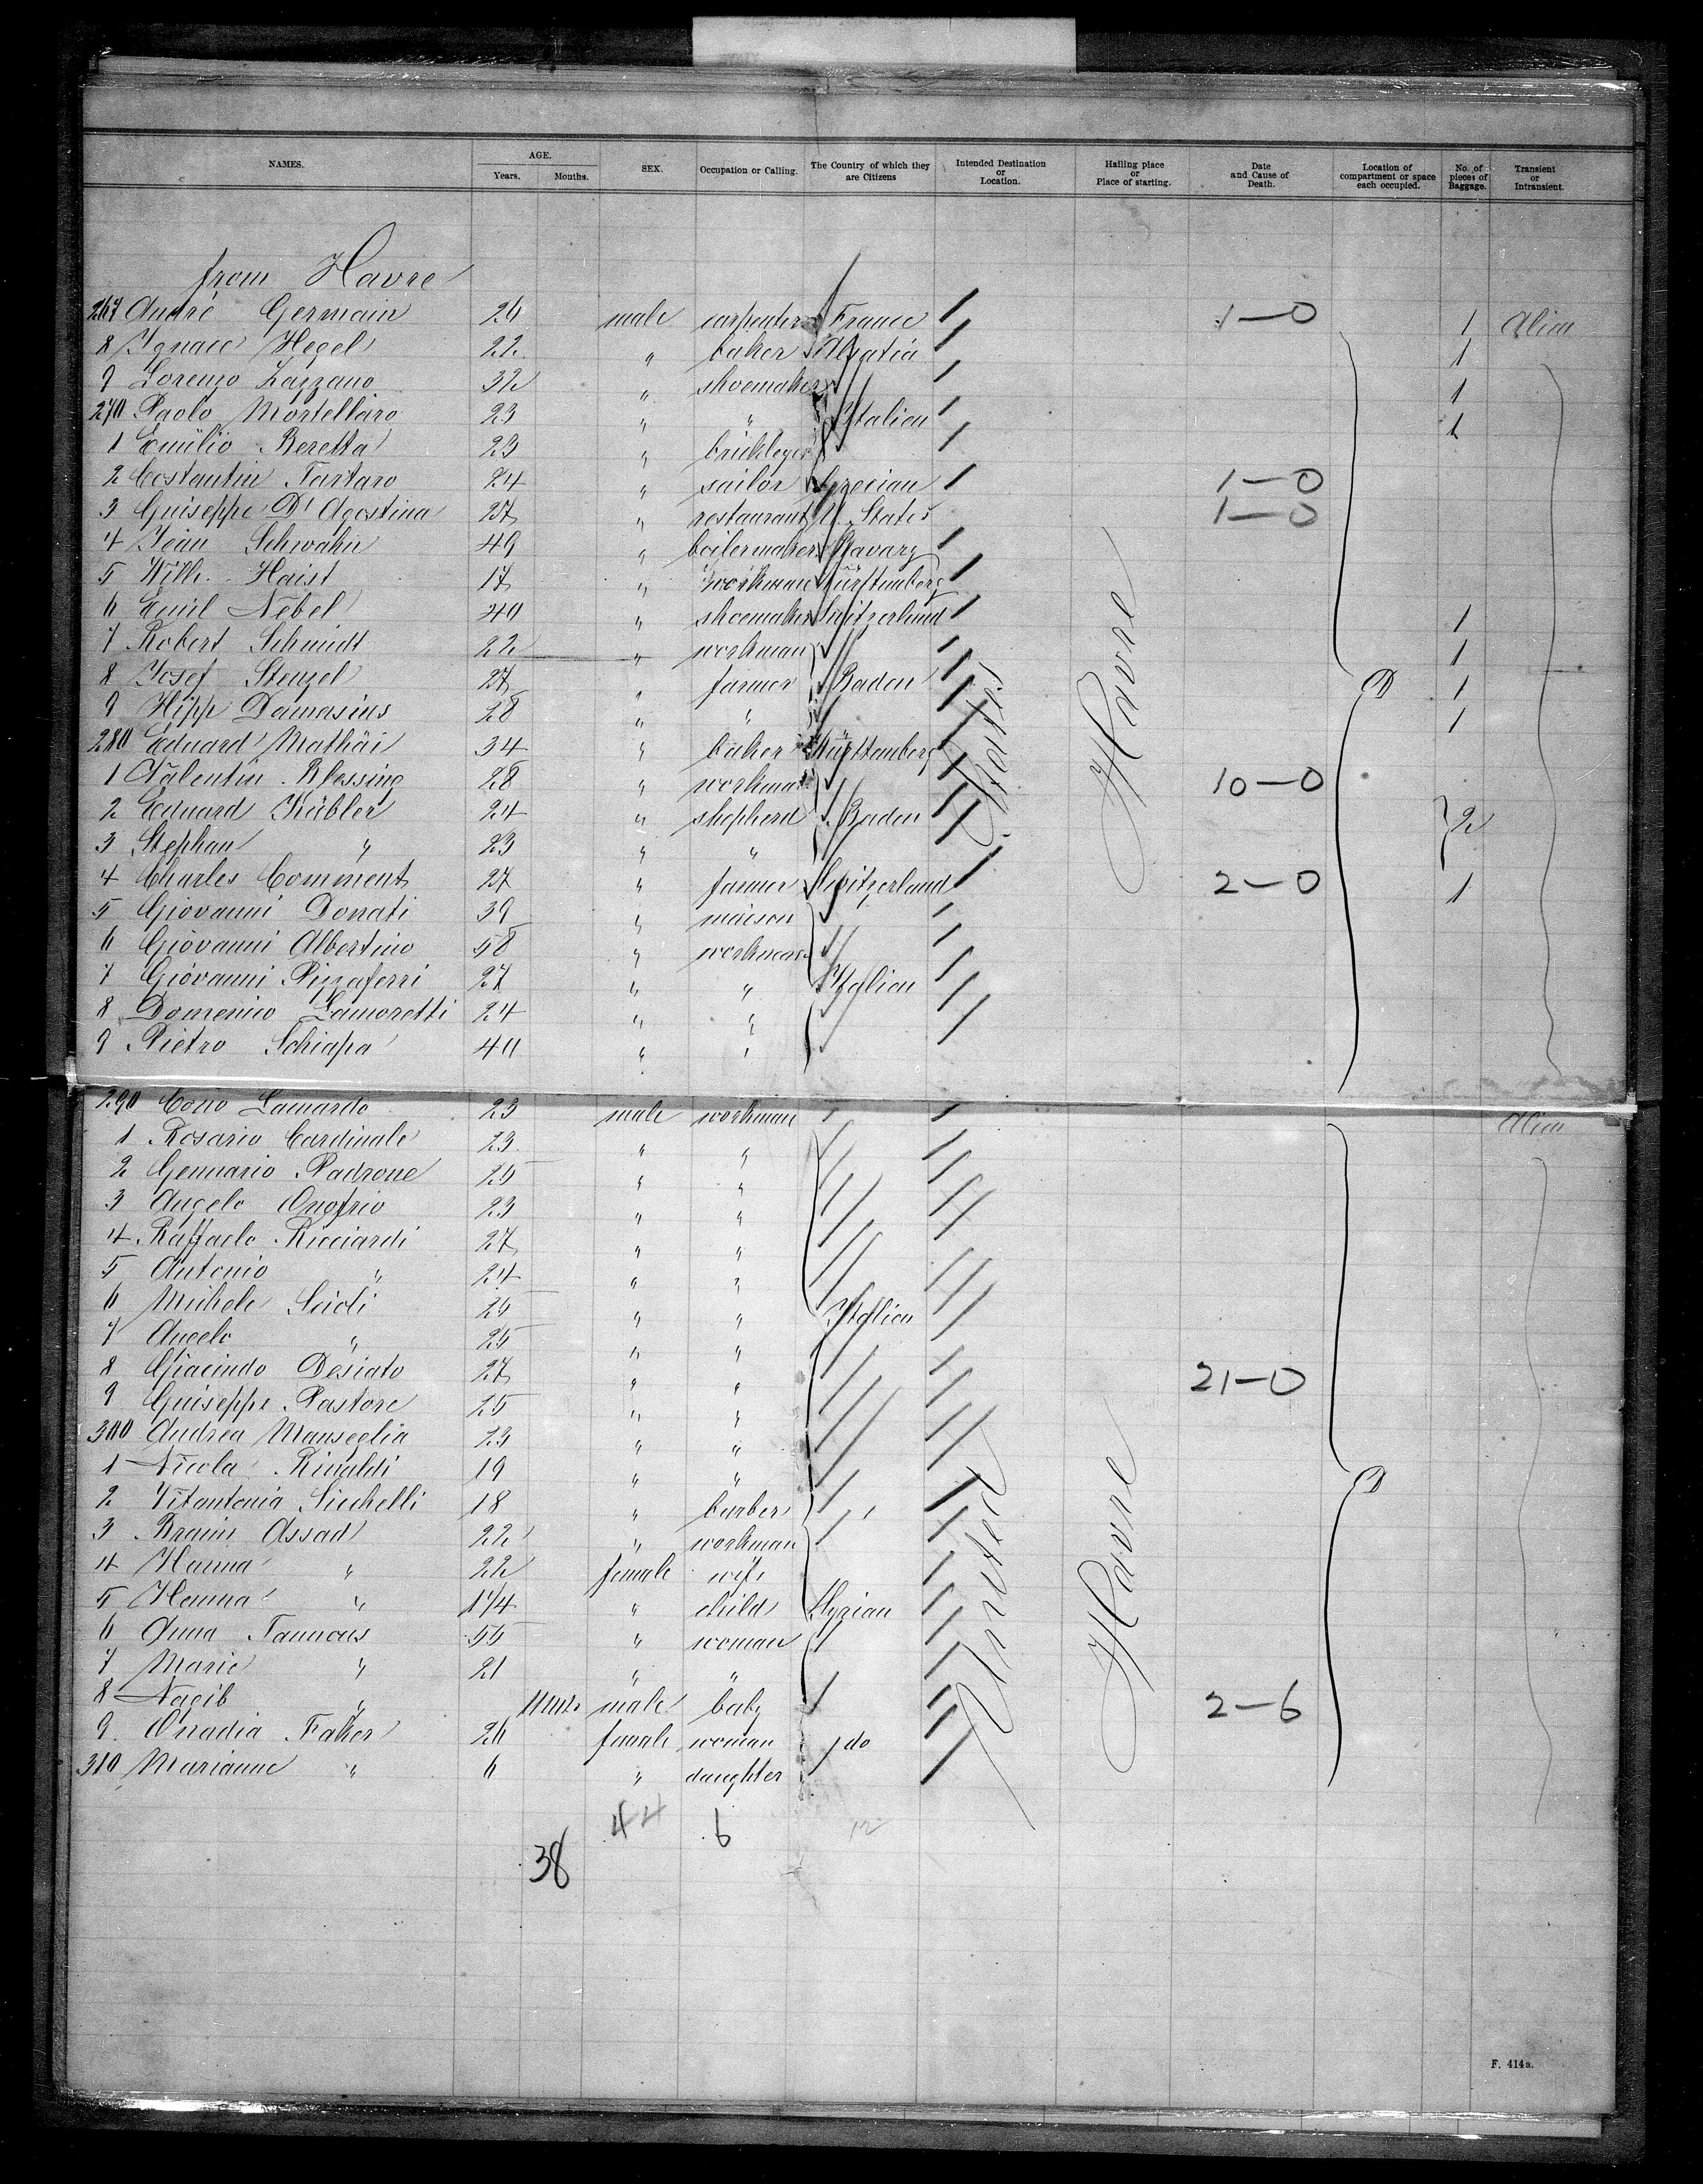 NAMES. AGE. Years. Months. SEX. Occupation or Calling. The Country of which they are Citizens Intended Destination or Location. Hailing place or Place of starting. Date and Cause of Death. Location of compartment or space each occupied. No. of pieces of Baggage. Transient or Intransient.
from Havre
267 André Germain 26 male carpenter France 1—0 1 Alien
8 Ignace Hegel 22 " baker 1
9 Lorenzo Lazzano 32 " shoemaker 1
270 Paolo Mortellaro 23 " " Italien 1
1 Emilio Beretta 23 " bricklayer
2 Costantin Tartaro 24 " sailor Grecian 1—0
3 Guiseppe D'Agostina 27 " restaurant U. States 1—0
4 Jean Schwahn 49 " boilermaker Bavary
5 Wilh. Haist 17 " workman Württemberg
6 Emil Nebel 40 " shoemaker Switzerland 1
7 Robert Schmidt 22 " workman 1
8 Josef Stenzel 27 " farmer Baden D 1
9 Hipp Damasius 28 " " 1
280 Eduard Mathäi 34 " baker Württemberg
1 Valentin Blessing 28 " workman 10—0
2 Eduard Kübler 24 " shepherd Baden 2
3 Stephan " 23 " "
4 Charles Comment 27 " farmer Switzerland 2—0 1
5 Giovanni Donati 39 " maison
6 Giovanni Albertino 58 " workman
7 Giovanni Pizzaferri 27 " " Italien
8 Domenico Zamoretti 24 " "
9 Pietro Schiapa 40 " "
States
Havre
290 Cono Lamardo 23 male workman Alien
1 Rosario Cardinale 23 " "
2 Gennario Padrone 25 " "
3 Angelo Onofrio 23 " "
4 Raffaelo Ricciardi 27 " "
5 Antonio " 24 " "
6 Michele Scioli 25 " " Italien
7 Angelo " 25 " "
8 Giacindo Desiato 27 " " 21—0
9 Guiseppe Pastore 25 " "
300 Andrea Manseglia 23 " "
1 Nicola Rinaldi 19 " " D
2 Vitantonia Sicchelli 18 " barber
3 Braim Assad 22 " workman
4 Hanna " 22 female wife
5 Hanna " 1 1/4 " child Syrian
6 Anna Tannous 55 " woman
7 Marie " 21 " "
8 Nagib " male baby 2—6
9. Faker 26 female woman do
310 Marianne " 6 " daughter
United
Havre
44 6 12
38
F. 414a.